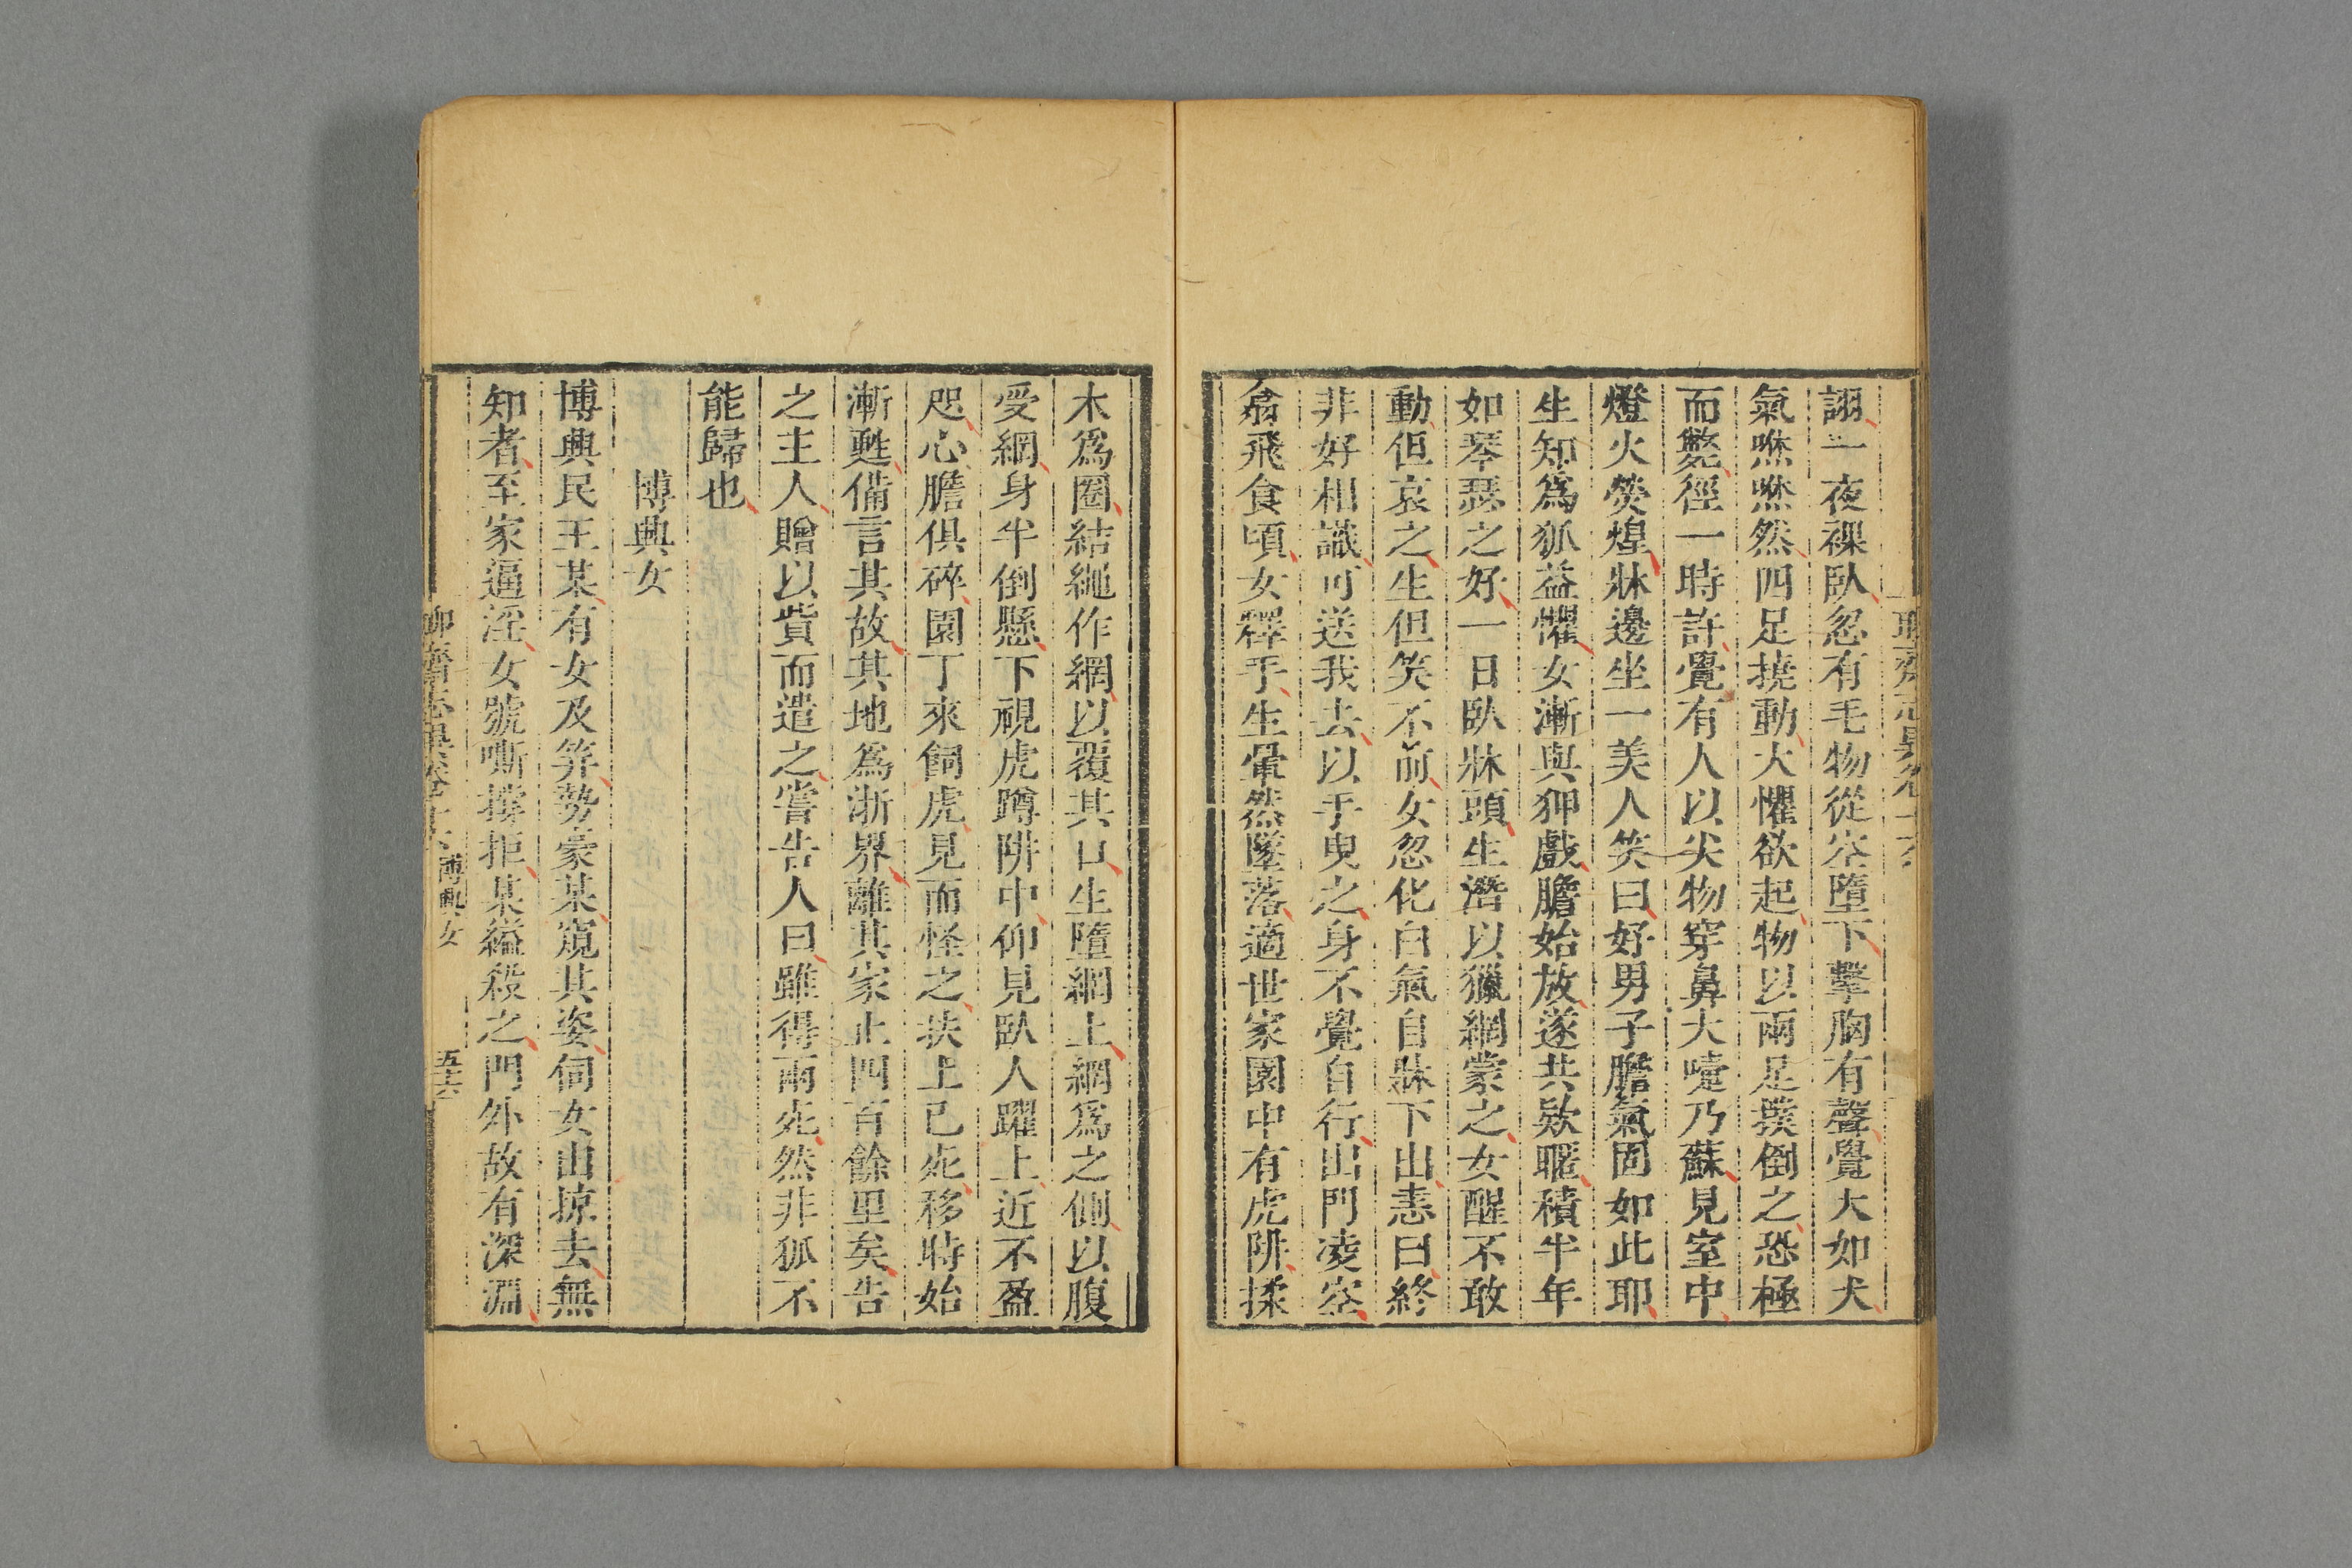 聊齋志異卷十六
詡一夜裸臥忽有毛物從空墮下擊胸有聲覺大如犬
氣咻咻然四足撓動大懼欲起物以兩足撲倒之恐極
而斃經一時許覺有人以尖物穿鼻大嚏乃蘇見室中
燈火熒煌牀邊坐一美人笑曰好男子膽氣固如此耶
生知爲狐益懼女漸與狎戲膽始放遂共欵暱積半年
如琴瑟之好一日臥牀頭生潛以獵網蒙之女醒不敢
動但哀之生但笑不前女忽化白氣自牀下出恚曰終
非好相識可送我去以手曳之身不覺自行出門凌空
翕飛食頃女釋手生暈然墜落適世家園中有虎阱揉
木爲圈結繩作網以覆其口生墮網上網爲之側以腹
受網身半倒懸下視虎蹲阱中仰見臥人躍上近不盈
咫心膽俱碎園丁來飼虎見而怪之扶上已死移時始
漸甦備言其故其地爲浙界離其家止四百餘里矣告
之主人贈以貲而遣之嘗告人曰雖得兩死然非狐不
能歸也
博興女
博興民王某有女及笄勢豪某窺其姿伺女出掠去無
知者至家逼淫女號嘶撐拒某縊殺之門外故有深淵
聊齋志異卷十六 博興女 五六